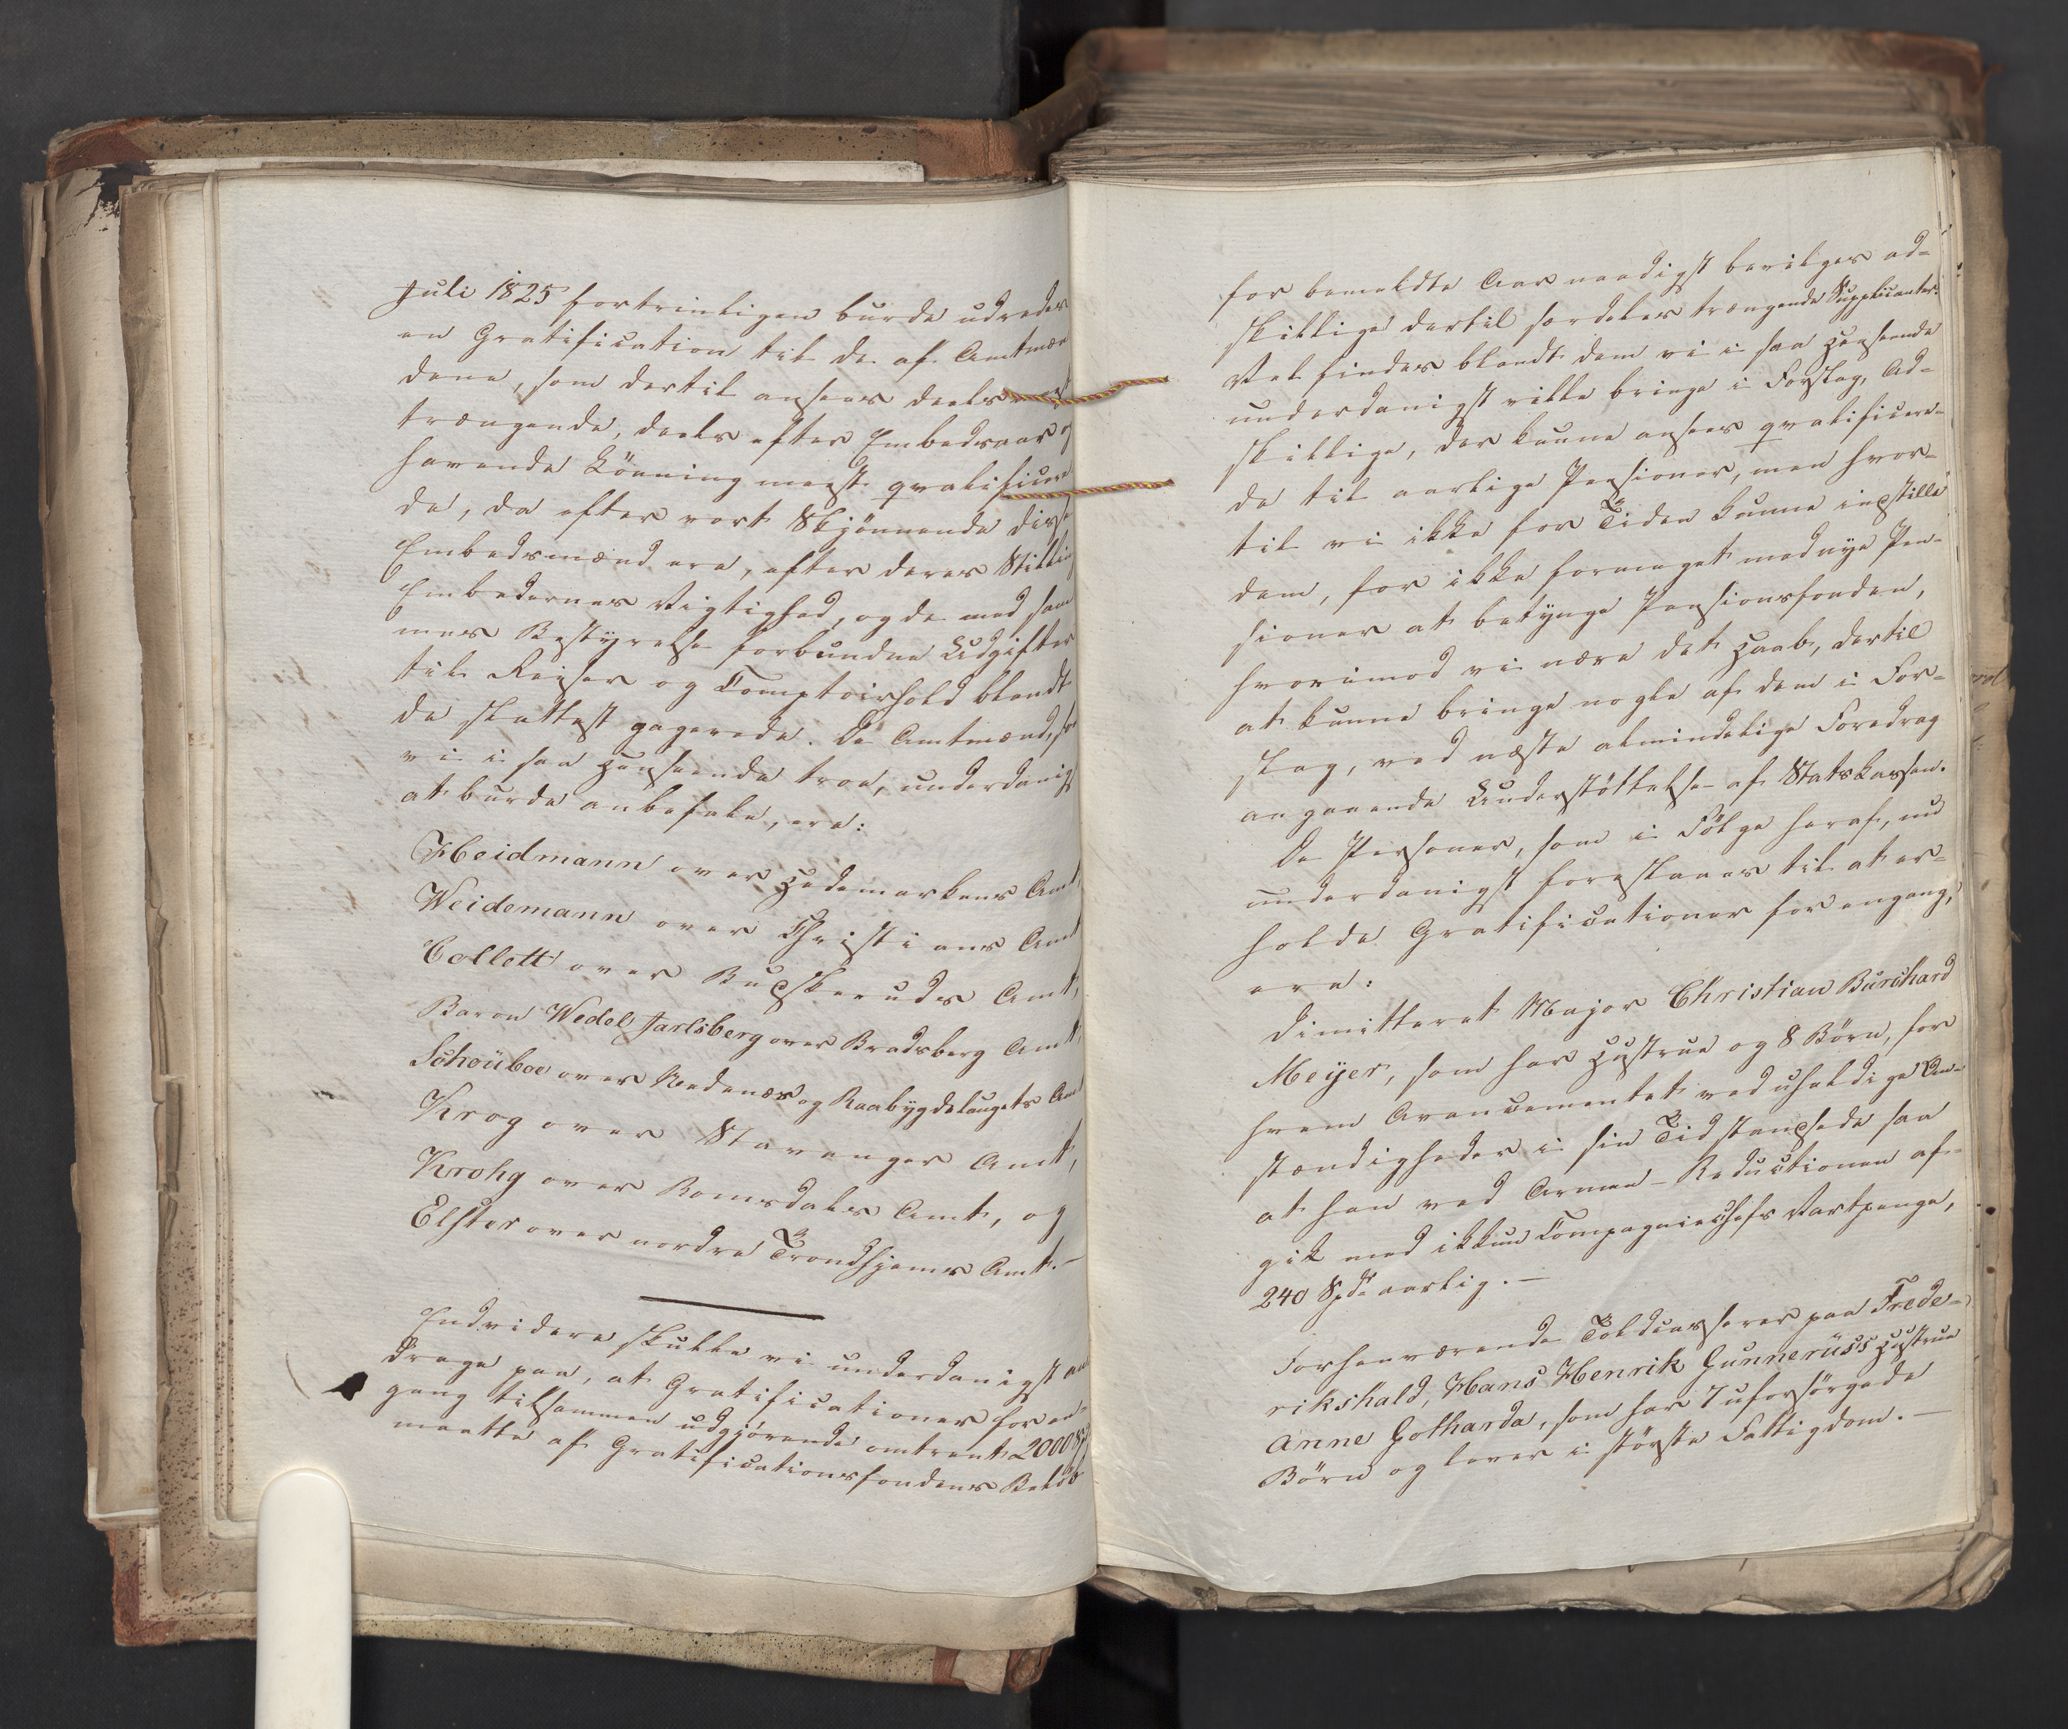 Juli 1825 fortrinligen burde udredes
en Gratification til de af Amtmæn
dene, som dertil ansees deels meest
trængende, deels efter Embedsaar og
havende Lönning meest qvalificere
de, da efter vort Skjönnende disse
Embedsmænd ere, efter deres Stilling
Embedernes Vigtighed, og de med sam
mes Bestyrelse forbundne Udgifter
til Reiser og Comptoirhold blandt
de slettest gagerede. De Amtmænd, som
vi i saa Henseende troe, underdanigst
at burde anbefale, ere:
Heidmann over Hedemarkens Amt,
Weidemann over Christians Amt
Collett over Buskeruds Amt,
Baron Wedel Jarlsberg over Bradsberg Amt,
Schouboe over Nedenæs og Raabygdelaugets Amt
Krog over Stavanger Amt,
Krohg over Romsdals Amt, og
Elster over nordre Trondhjems Amt.—
Endvidere skulle vi underdanigst an
drage paa, at Gratificationer for en-
gang tilsammen udgjørende omtrent 2000 Spd
maatte af Gratificationsfondens Beløb
for bemeldte Aar naadigst bevilges ad-
skillige dertil særdeles trængende Supplicanter.
Vel findes blandt dem vi i saa Henseende
underdanigst ville bringe i Forslag, Ad-
skillige, der kunne ansees qvalificere-
de til aarlige Pensioner, men hvor-
til vi ikke for Tiden kunne indstille
dem, for ikke formeget med nye Pen-
sioner at betynge Pensionsfonden,
hvorimod vi nære det Haab, dertil
at kunne bringe nogle af dem i For-
slag, ved næste almindelige Foredrag
angaaende Understöttelse af Statskassen.
De Personer, som i Fölge heraf, nu
underdanigst foreslaaes til at er-
holde Gratificationer for engang,
ere:
Dimitteret Major Christian Burchard
Meyer, som har Hustrue og 8 Börn, for
hvem Avancementet ved uheldige Om-
stændigheder i sin Tid standsede saa
at han ved Armee-Reductionen af-
gik med ikkun Compagniechefs Vartpenge,
240 Spdr aarlig.—
Forhenværende Toldcasserer paa Frede-
rikshald, Hans Henrik Gunneruss Hustrue
Anne Gotharda, som har 7 uforsörgede
Börn og lever i störste Fattigdom.—